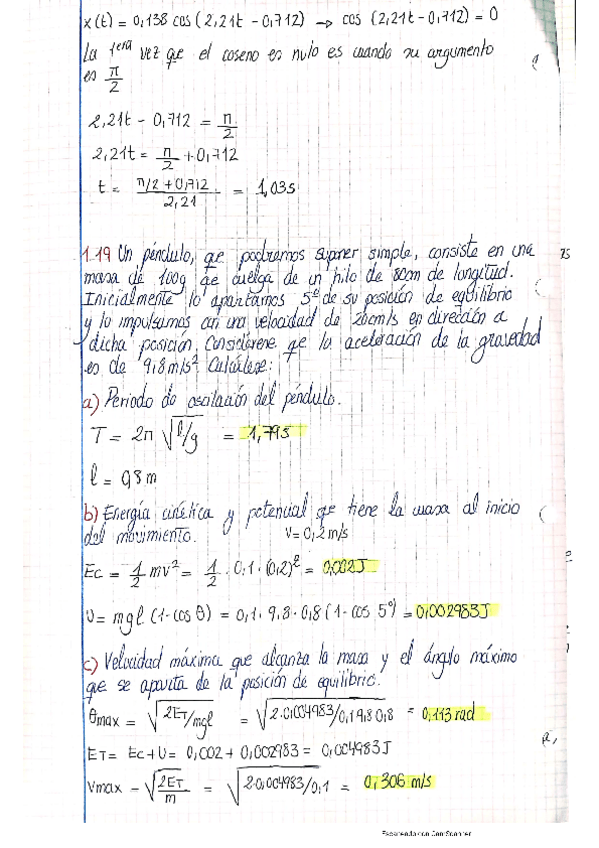 x(t) = 0,138 cos (2,21t - 0,712) → cos (2,21t - 0,712) = 0
La 1era vez que el coseno es nulo es cuando su argumento
es π/2
2,21t - 0,712 = π/2
2,21t = π/2 + 0,712
t = π/2 + 0,712 / 2,21 = 1,03s
1.19 Un péndulo, que podremos suponer simple, consiste en una
masa de 100g que cuelga de un hilo de 80cm de longitud.
Inicialmente lo apartamos 5º de su posición de equilibrio
y lo impulsamos con una velocidad de 20cm/s en dirección a
dicha posición. Considérese que la aceleración de la gravedad
es de 9,8 m/s² Calcúlese:
a) Periodo de oscilación del péndulo.
T = 2π √l/g = 1,79s
l = 0,8 m
b) Energía cinética y potencial que tiene la masa al inicio
del movimiento. V = 0,2 m/s
Ec = 1/2 mv² = 1/2 · 0,1 · (0,2)² = 0,002J
U = mgl (1 - cos θ) = 0,1 · 9,8 · 0,8 (1 - cos 5º) = 0,002983J
c) Velocidad máxima que alcanza la masa y el ángulo máximo
que se aparta de la posición de equilibrio.
θmax = √2ET/mgl = √2·0,004983/0,1 9,8 0,8 = 0,113 rad
ET = Ec + U = 0,002 + 0,002983 = 0,004983J
Vmax = √2ET/m = √2·0,004983/0,1 = 0,306 m/s
Escaneado con CamScanner